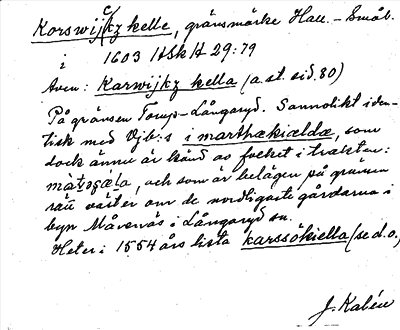 Korswijkz kelle, gränsmärke Hall. - Småb.
i 1603 HSkH 29:79
Även: Karwijkz kella (a.st. sid. 80)
På gränsen Torup-Långaryd. Sannolikt iden-
tisk med Vjb:s i marthækiældæ, som
dock ännu är känd av folket i trakten:
och som är belägen på gränsen
rätt väster om de nordligaste gårdarna i
byn Månsnäs i Långaryd sn.
Heter i 1554 års lista karssökiella (se d.o.)
J. Kalén